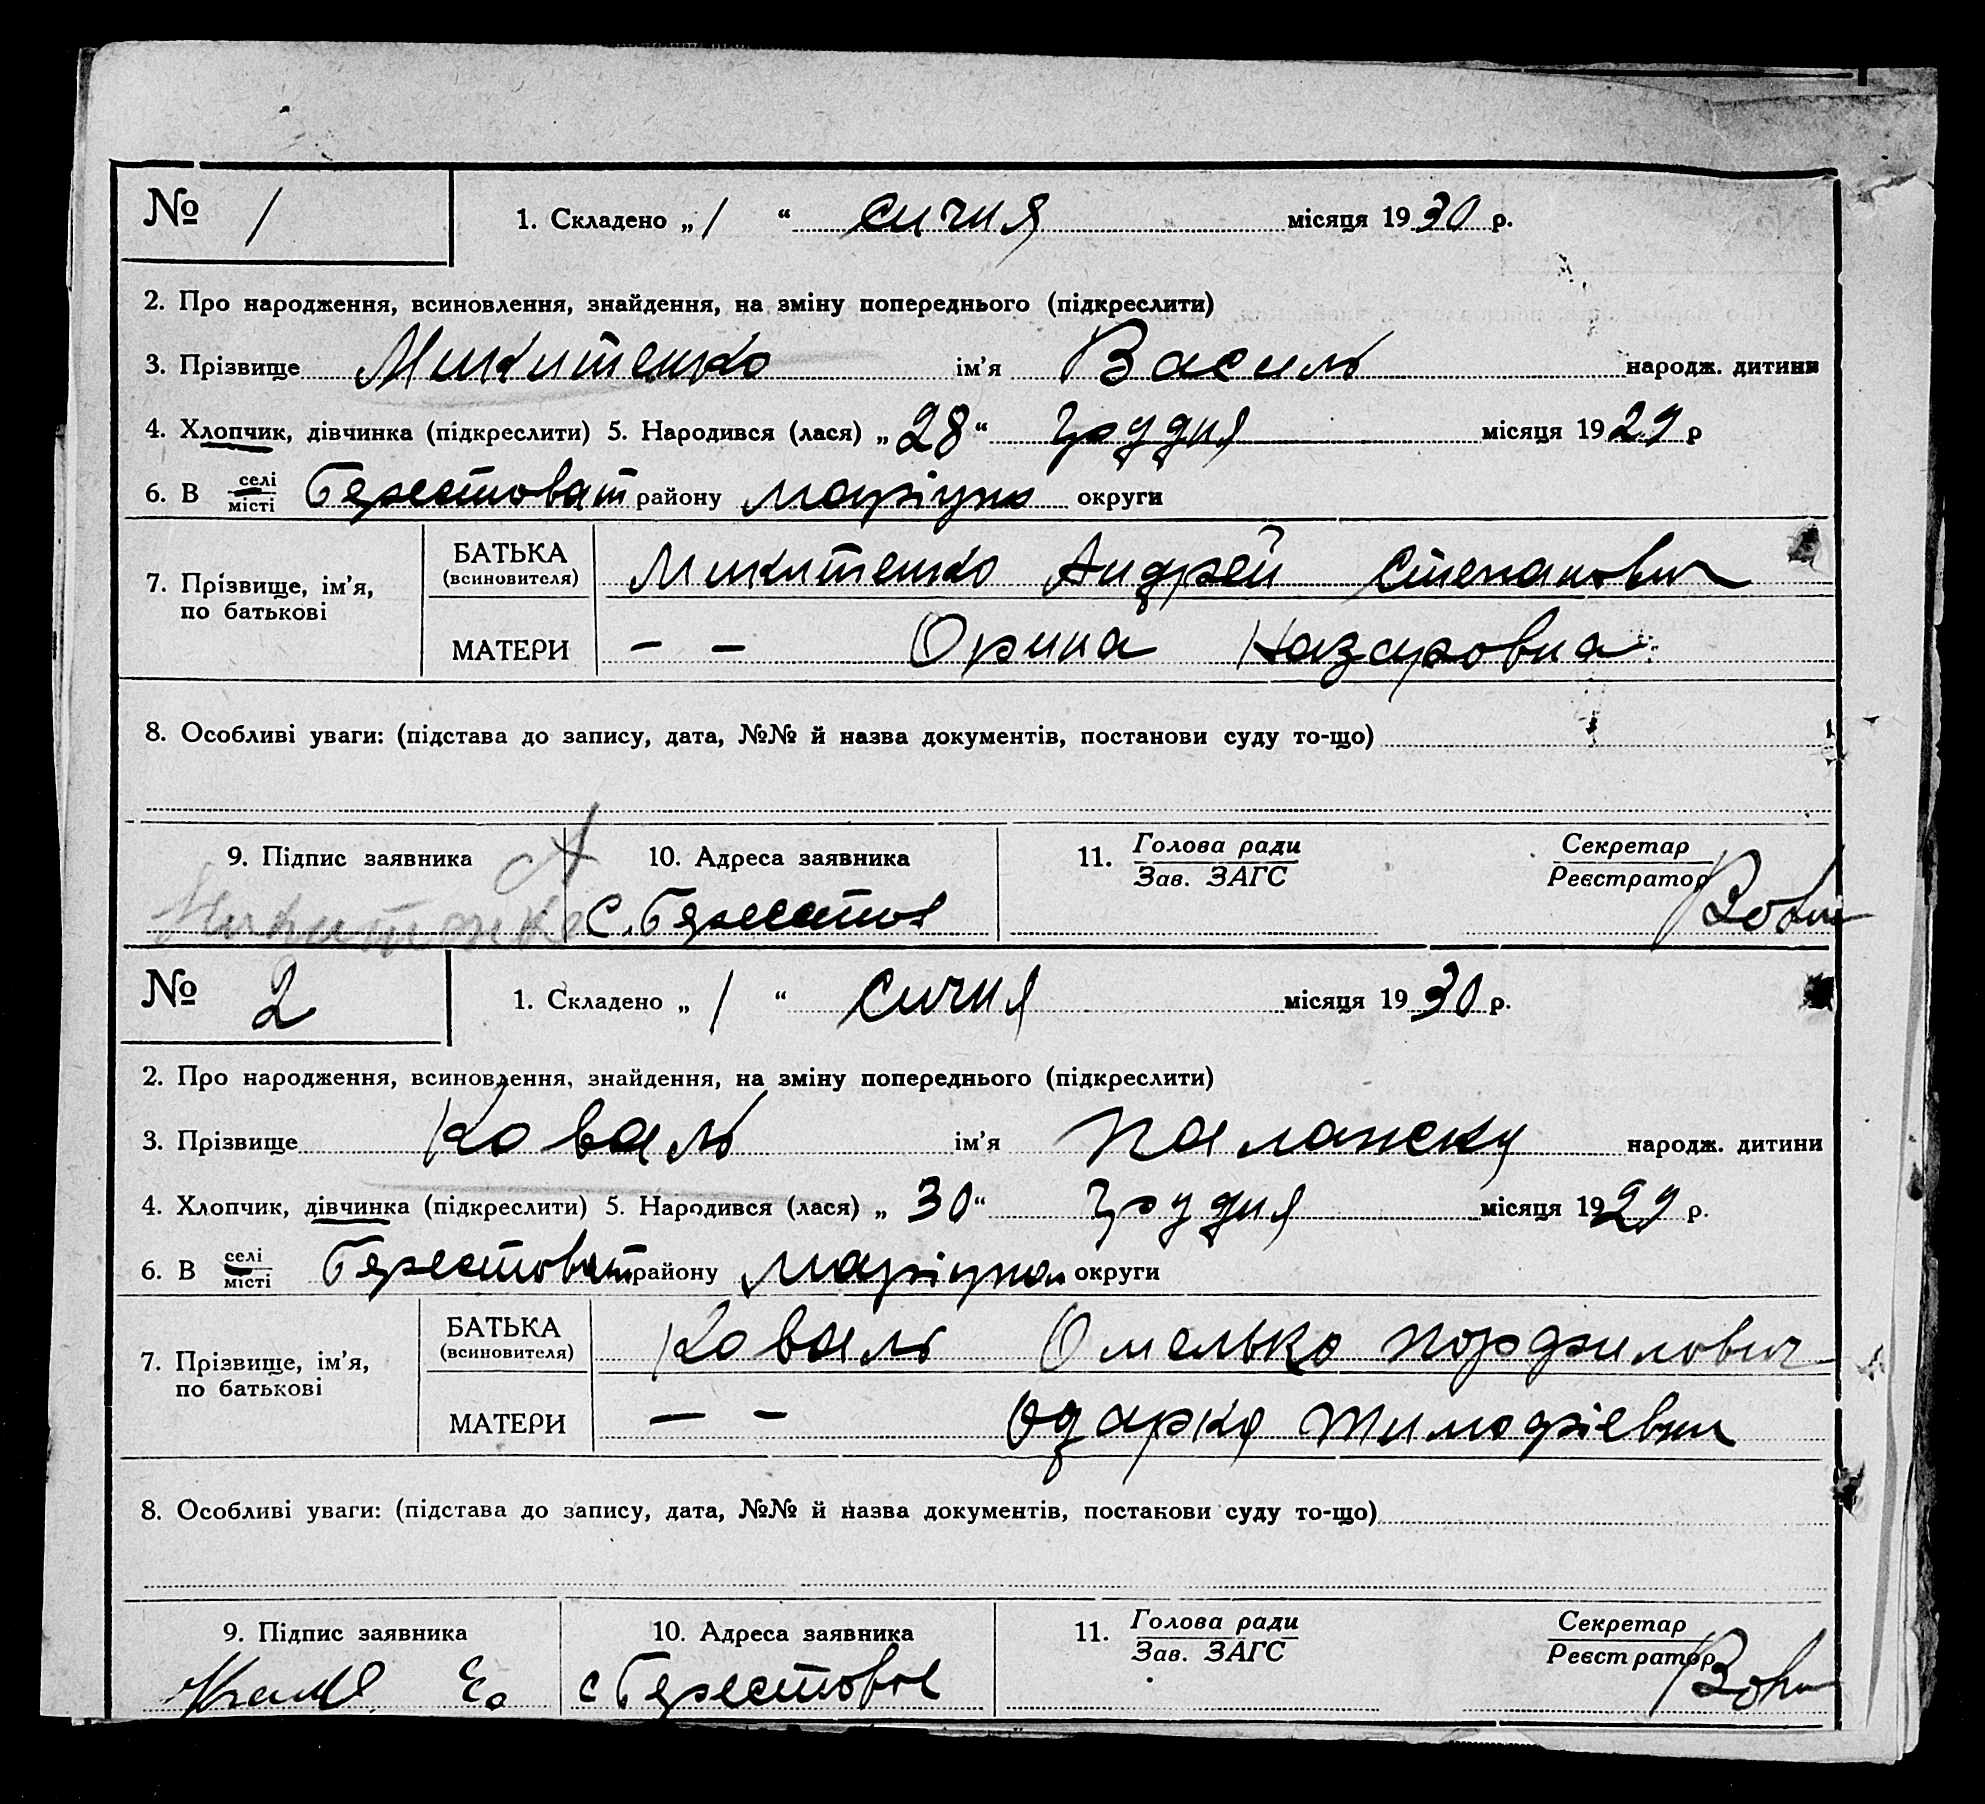 № 1 1. Складено „ 1 “ сичня місяця 1930 р.
2. Про народження, всиновлення, знайдення, на зміну попереднього (підкреслити)
3. Прізвище Микитенко ім’я Василь народж. дитини
4. Хлопчик, дівчинка (підкреслити) 5. Народився (лася) „ 28 “ грудня місяця 1929 р
6. В селі/місті Берестоват району Маріуп округи
7. Прізвище, ім’я, по батькові
БАТЬКА (всиновителя) Микитенко Андрей Степанович
МАТЕРИ – – Орина Назаровна
8. Особливі уваги: (підстава до запису, дата, №№ й назва документів, постанови суду то-що)
9. Підпис заявника 10. Адреса заявника 11. Голова ради/Зав. ЗАГС Секретар/Реєстратор
Микитенко А с. Берестов
№ 2 1. Складено „ 1 “ сичня місяця 1930 р.
2. Про народження, всиновлення, знайдення, на зміну попереднього (підкреслити)
3. Прізвище Коваль ім’я народж. дитини
4. Хлопчик, дівчинка (підкреслити) 5. Народився (лася) „ 30 “ грудня місяця 1929 р.
6. В селі/місті Берестоват району Маріупол округи
7. Прізвище, ім’я, по батькові
БАТЬКА (всиновителя) Коваль Омелько
МАТЕРИ – – Одарка Тимофіевна
8. Особливі уваги: (підстава до запису, дата, №№ й назва документів, постакови суду то-що)
9. Підпис заявника 10. Адреса заявника 11. Голова ради/Зав. ЗАГС Секретар/Реєстратор
с Берестовое